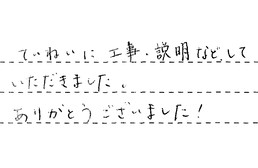 ていねいに工事・説明などして
いただきました。
ありがとうございました！